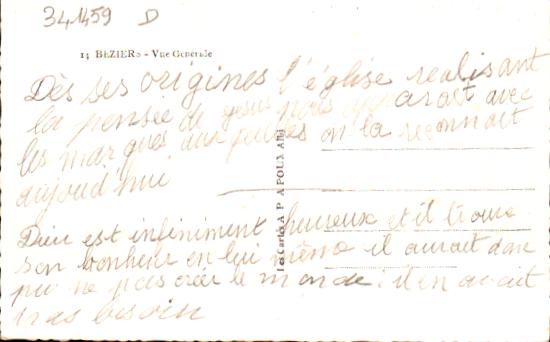 341459 D
14 BÉZIERS - Vue Générale
Dès ses origines l'église realisant
la pensée de Jesus nous apparait avec
les marques aux on la reconnait
aujourd'hui
Dieu est infiniment heureux et il trouve
son bonheur en lui même il aurait donc
pu ne pas créer le monde : il n'en avait
pas besoin
Les Cartes A P A POUX ALBI